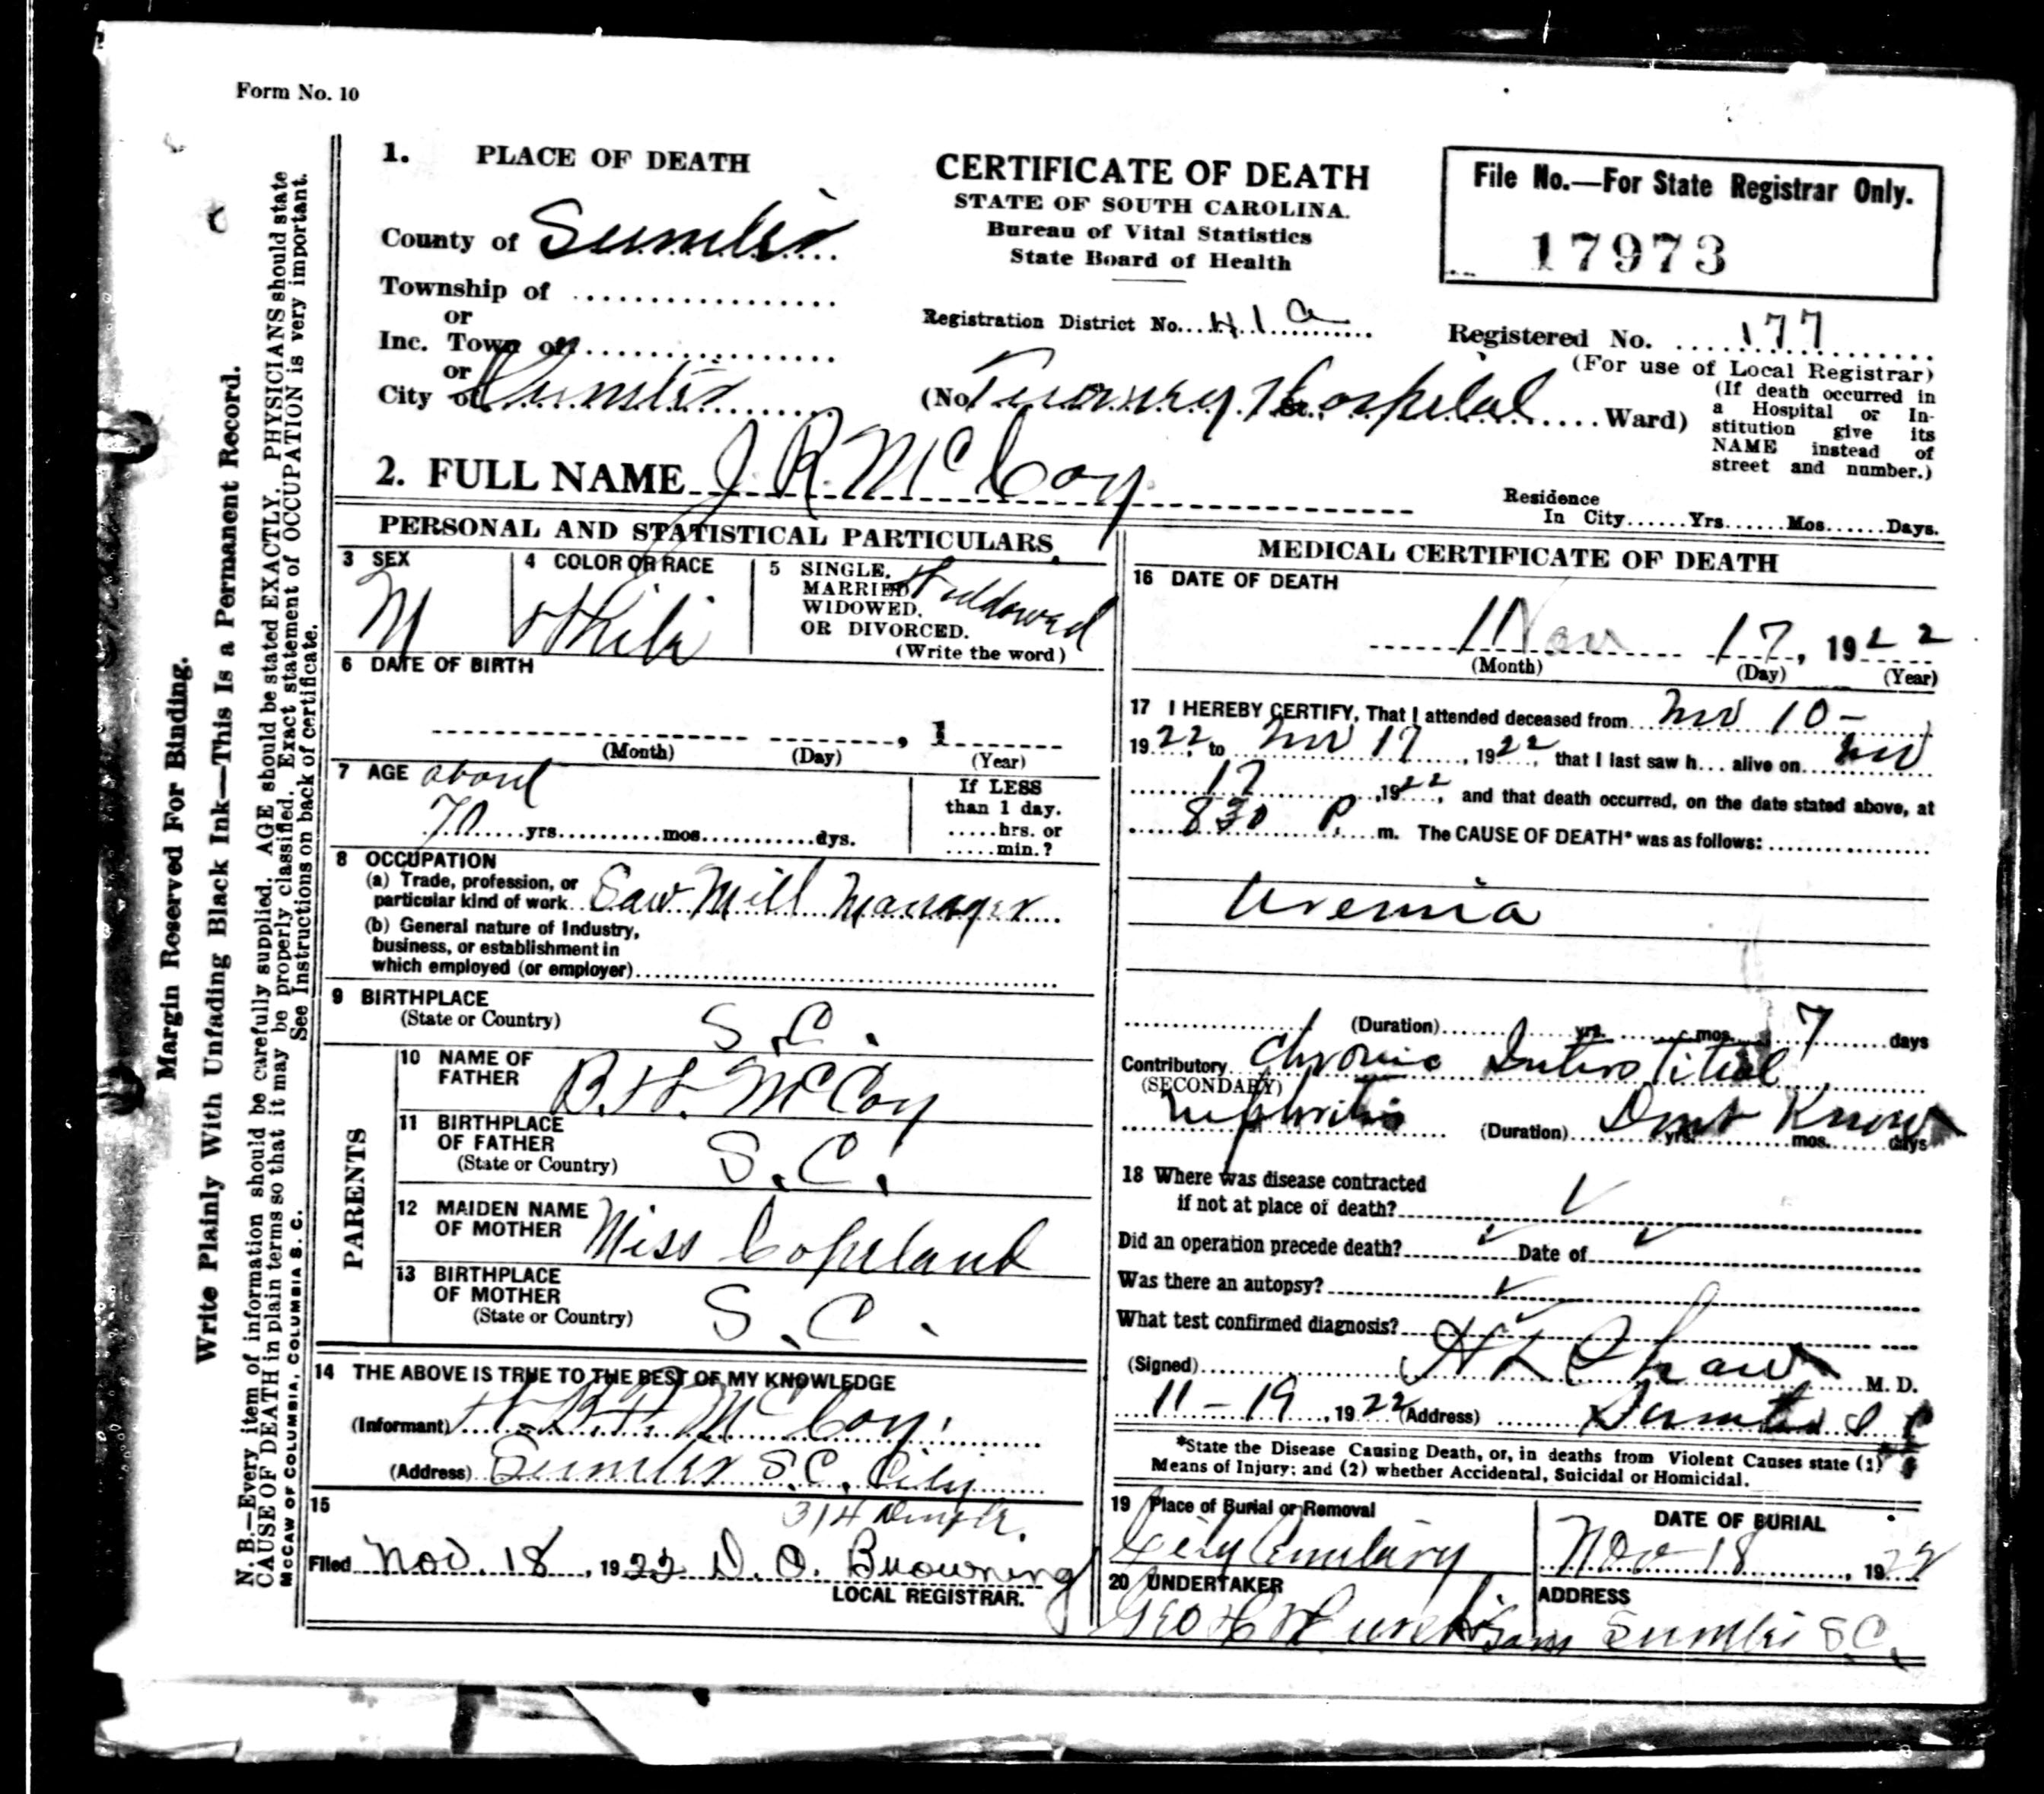 Form No. 10
Margin Reserved For Binding.
Write Plainly With Unfading Black Ink—This Is a Permanent Record.
N. B.—Every item of information should be carefully supplied. AGE should be stated EXACTLY. PHYSICIANS should state
CAUSE OF DEATH in plain terms so that it may be properly classified. Exact statement of OCCUPATION is very important.
See Instructions on back of certificate.
McCAW OF COLUMBIA, COLUMBIA S. C.
1. PLACE OF DEATH
County of Sumter
Township of
or
Inc. Town of
or
City of Sumter
CERTIFICATE OF DEATH
STATE OF SOUTH CAROLINA.
Bureau of Vital Statistics
State Board of Health
Registration District No. 41a
(No. Hospital St. Ward)
File No.—For State Registrar Only.
17973
Registered No. 177
(For use of Local Registrar)
(If death occurred in
a Hospital or In-
stitution give its
NAME instead of
street and number.)
2. FULL NAME J R McCoy
Residence
In City......Yrs......Mos......Days.
PERSONAL AND STATISTICAL PARTICULARS.
3 SEX
M
4 COLOR OR RACE
White
5 SINGLE,
MARRIED,
WIDOWED,
OR DIVORCED.
(Write the word)
Widdowed
6 DATE OF BIRTH
, 1
(Month) (Day) (Year)
7 AGE about
70 yrs. mos. dys.
If LESS
than 1 day.
.....hrs. or
.....min.?
8 OCCUPATION
(a) Trade, profession, or
particular kind of work Saw Mill Manager
(b) General nature of Industry,
business, or establishment in
which employed (or employer)
9 BIRTHPLACE
(State or Country) S.C.
PARENTS
10 NAME OF
FATHER B.H. McCoy
11 BIRTHPLACE
OF FATHER
(State or Country) S.C.
12 MAIDEN NAME
OF MOTHER Miss Copeland
13 BIRTHPLACE
OF MOTHER
(State or Country) S.C.
14 THE ABOVE IS TRUE TO THE BEST OF MY KNOWLEDGE
(Informant) H. B.H. McCoy.
(Address) Sumter S.C. City
314
15
Filed Nov. 18, 1922 D. O. Browning
LOCAL REGISTRAR.
MEDICAL CERTIFICATE OF DEATH
16 DATE OF DEATH
Nov 17, 1922
(Month) (Day) (Year)
17 I HEREBY CERTIFY, That I attended deceased from Nov 10-
1922, to Nov 17, 1922, that I last saw h... alive on Nov
17, 1922, and that death occurred, on the date stated above, at
830 P. m. The CAUSE OF DEATH* was as follows:
Uremia
(Duration) yrs. mos. 7 days
Contributory Chronic Interstitial
(SECONDARY)
nephritis (Duration) Dont Know yrs. mos. days
18 Where was disease contracted
if not at place of death?
Did an operation precede death? Date of
Was there an autopsy?
What test confirmed diagnosis?
(Signed) H L Shaw M. D.
11-19, 1922 (Address) Sumter S C
*State the Disease Causing Death, or, in deaths from Violent Causes state (1)
Means of Injury; and (2) whether Accidental, Suicidal or Homicidal.
19 Place of Burial or Removal
City Cemetery
DATE OF BURIAL
Nov 18, 1922
20 UNDERTAKER
Geo H
ADDRESS
Sumter S.C.